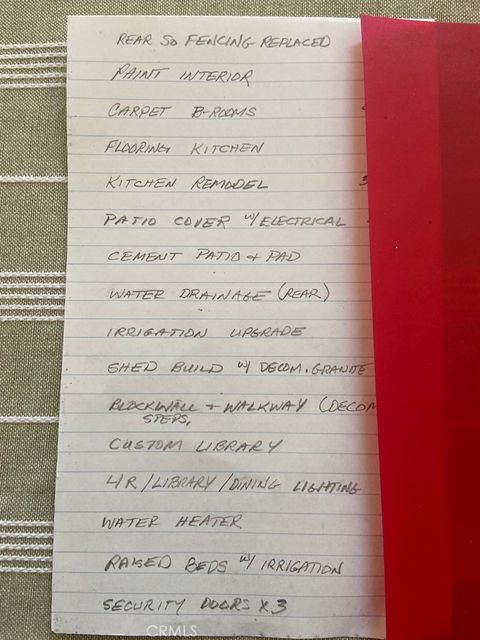 REAR SO FENCING REPLACED
PAINT INTERIOR
CARPET B-ROOMS
FLOORING KITCHEN
KITCHEN REMODEL
PATIO COVER W/ ELECTRICAL
CEMENT PATIO + PAD
WATER DRAINAGE (REAR)
IRRIGATION UPGRADE
SHED BUILD W/ DECOM. GRANITE
BLOCKWALL + WALKWAY (DECOM
STEPS,
CUSTOM LIBRARY
LIR/LIBRARY/DINING LIGHTING
WATER HEATER
RAISED BEDS W/ IRRIGATION
SECURITY DOORS X 3
CRMLS